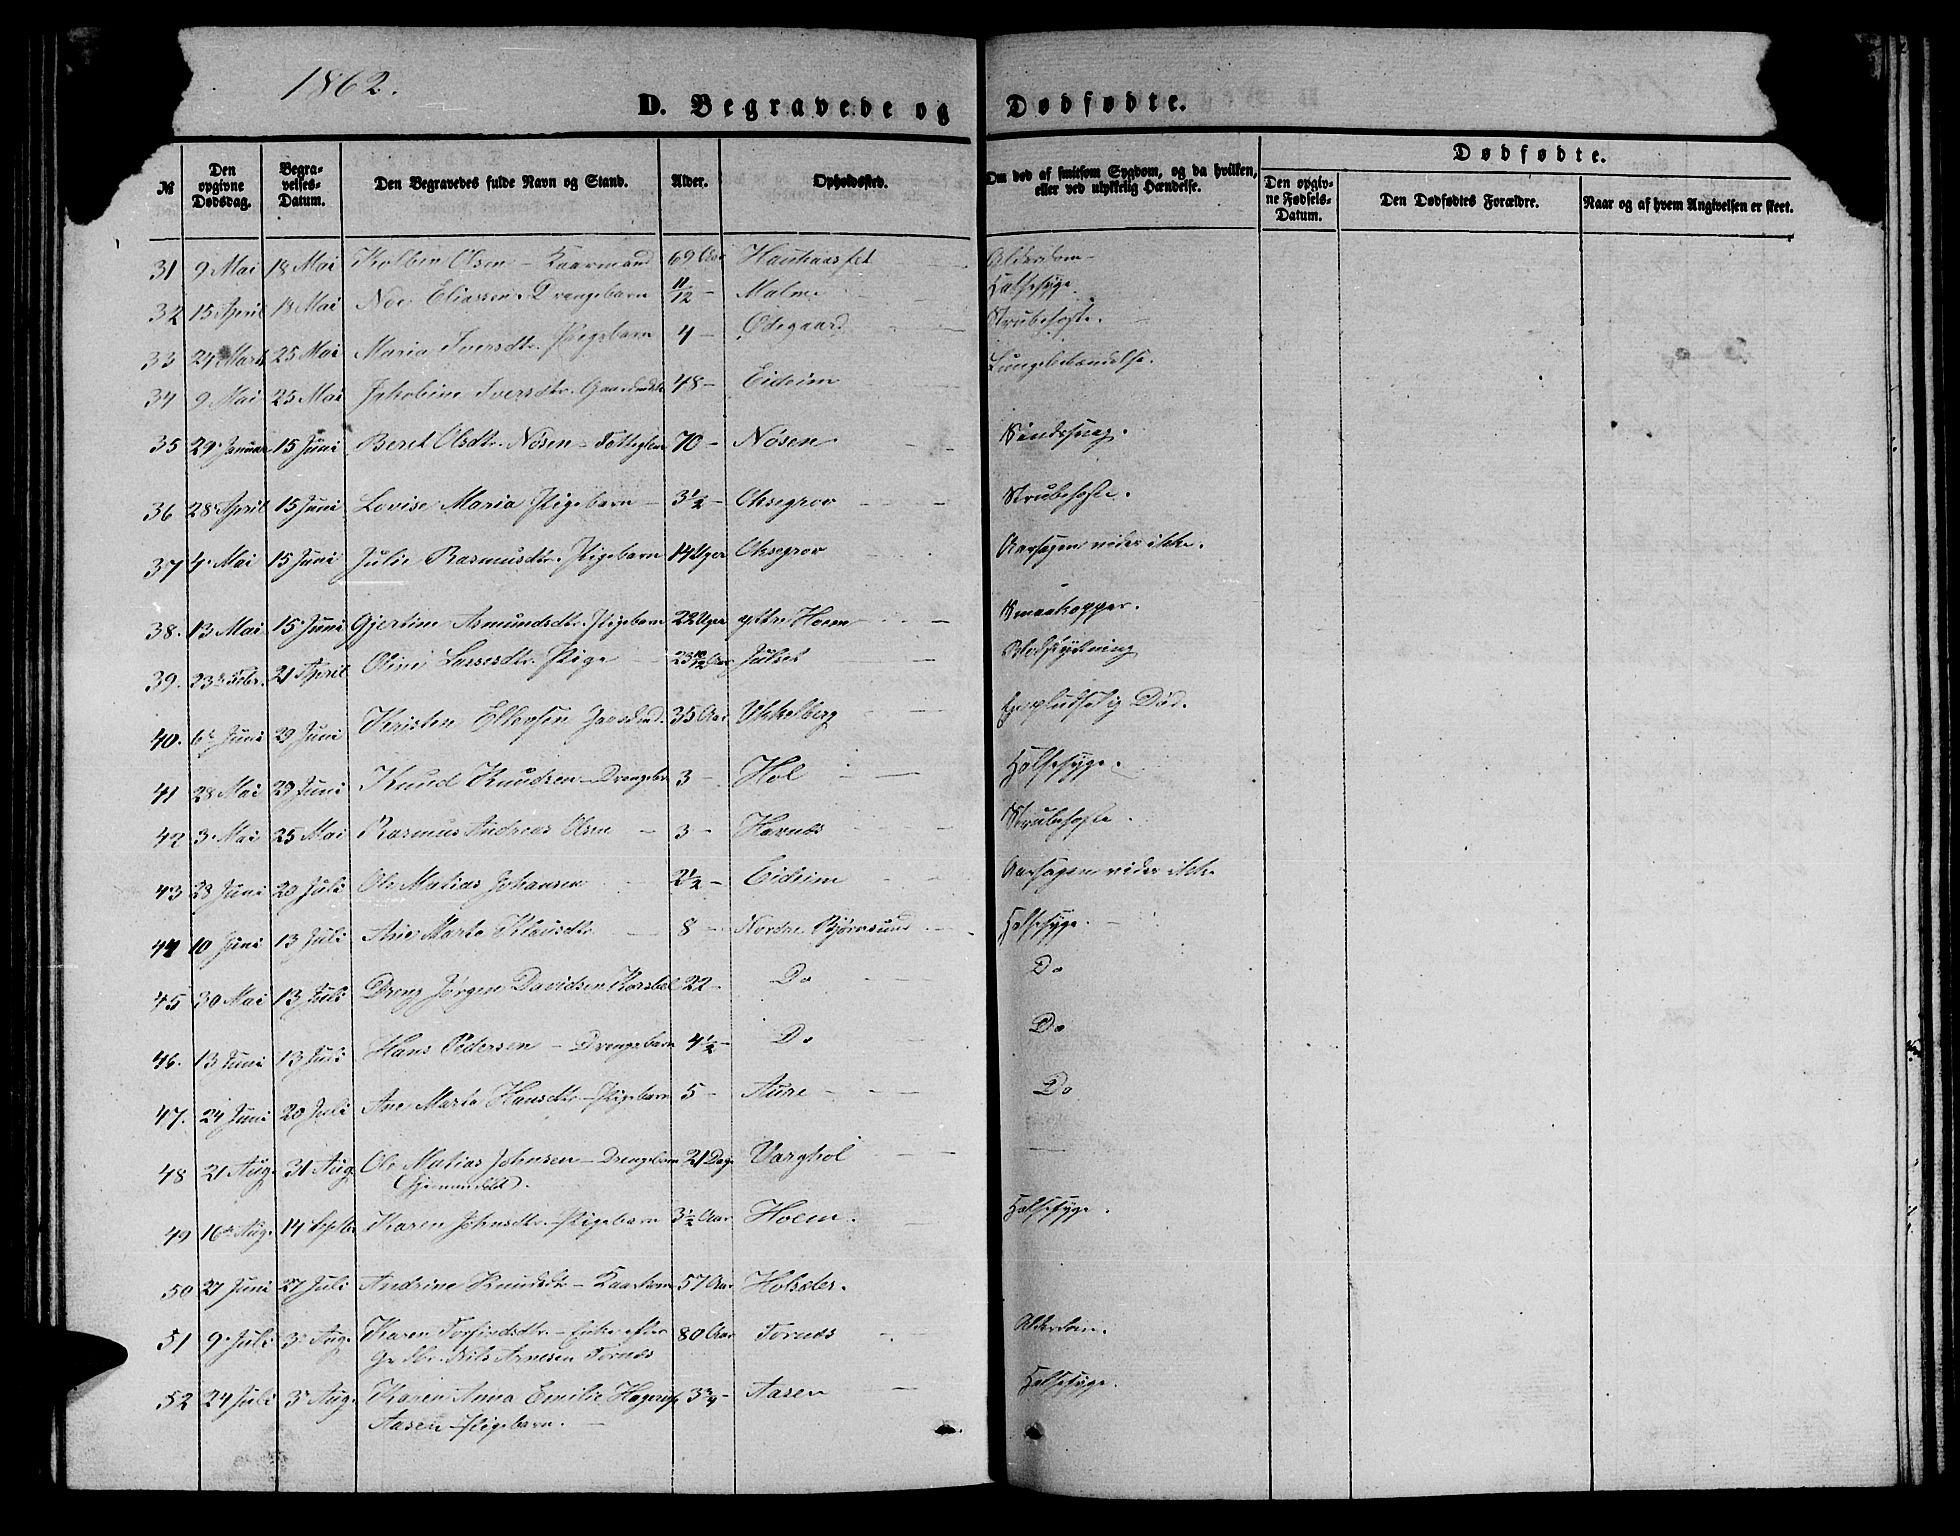 1862.
D. Begravede og Dødfødte.
№ Den opgivne Dødsdag. Begravelses-Datum. Den Begravedes fulde Navn og Stand. Alder. Opholdssted. Om død af smitsom Sygdom, og da hvilken, eller ved ulykkelig Hændelse. Dødfødte.
Den opgivne Fødsels-Datum. Den Dødfødtes Forældre. Naar og af hvem Angivelsen er skeet.
31 9 Mai 18 Mai Kolbin Olsen - Kaarmand 69 Aar Haukaasset Alderdom
32 15 April 18 Mai Noe Eliassen. Drengebarn 11/12 - Malme Halssyge
33 24 Marts 25 Mai Maria Iversdtr. Pigebarn 4 - Ødegaard Strubehoste.
34 9 Mai 25 Mai Jakobine Iversdtr. 48 - Eideim Lungebetændelse.
35 29 Januar 15 Juni Beret Olsdtr. Nøsen - 70 - Nøsen Sindssvag.
36 28 April 15 Juni Lovise Maria Pigebarn 3½ - Oksegrov Strubehoste.
37 4. Mai 15 Juni Julie Rasmusdtr. Pigebarn 14 Uger Oksegrov Aarsagen vides ikke.
38. 13 Mai 15 Juni Gjertine Asmundsdtr. Pigebarn 22 Uger ytre Hoem Smaakopper.
39. 23de Febr. 21 April Oline Lassesdtr. Pige 23 10/12 Aar Julset Blodstyrtning
40. 6te Juni 29 Juni Kristen Ellevsen 35 Aar Ukkelberg pludselig Død.
41 28 Mai 29 Juni Knud Knudsen - Drengebr 3 - Hol Halssyge.
42 3. Mai 25 Mai Rasmus Andreas Olsen - 3 - Havnæs Strubehoste.
43 23 Juni 20 Juli Ole Matias Johansen 2½ - Eideim Aarsagen vides ikke
44 10 Juni 13 Juli Ane Marta Klausdtr 8 - Nordre Bjørnsund Halssyge.
45 30 Mai 13 Juli Dreng Jørgen Davidsen 22 - Do Do
46. 13 Juni 13 Juli Hans Pedersen - Drengebarn 4½ - Do Do
47. 24 Juni 20 Juli Ane Marta Hansdtr - Pigebarn 5 - Aure - Do
48 21 Aug. 31 Aug. Ole Matias Johnsen - Drengebarn 21 Dage Varghol
(Hjemmedøbt).
49 16de Aug. 14 Septbr Karen Johnsdtr. Pigebarn 3½ Aar Hoem. Halssyge.
50 27 Juni 27 Juli Andrine Knudsdtr - Kaarkone 57 Aar
51 9. Juli 3. Aug. Karen Torfindsdtr. - Enke efter 80 Aar Tornæs Alderdom.
Gdbr. Nils Arnesen Tornæs
52 24 Juli 3. Aug. Karen Anna Emilie Hagerup 3¾ - Aasen Halssyge.
Aasen - Pigebarn.